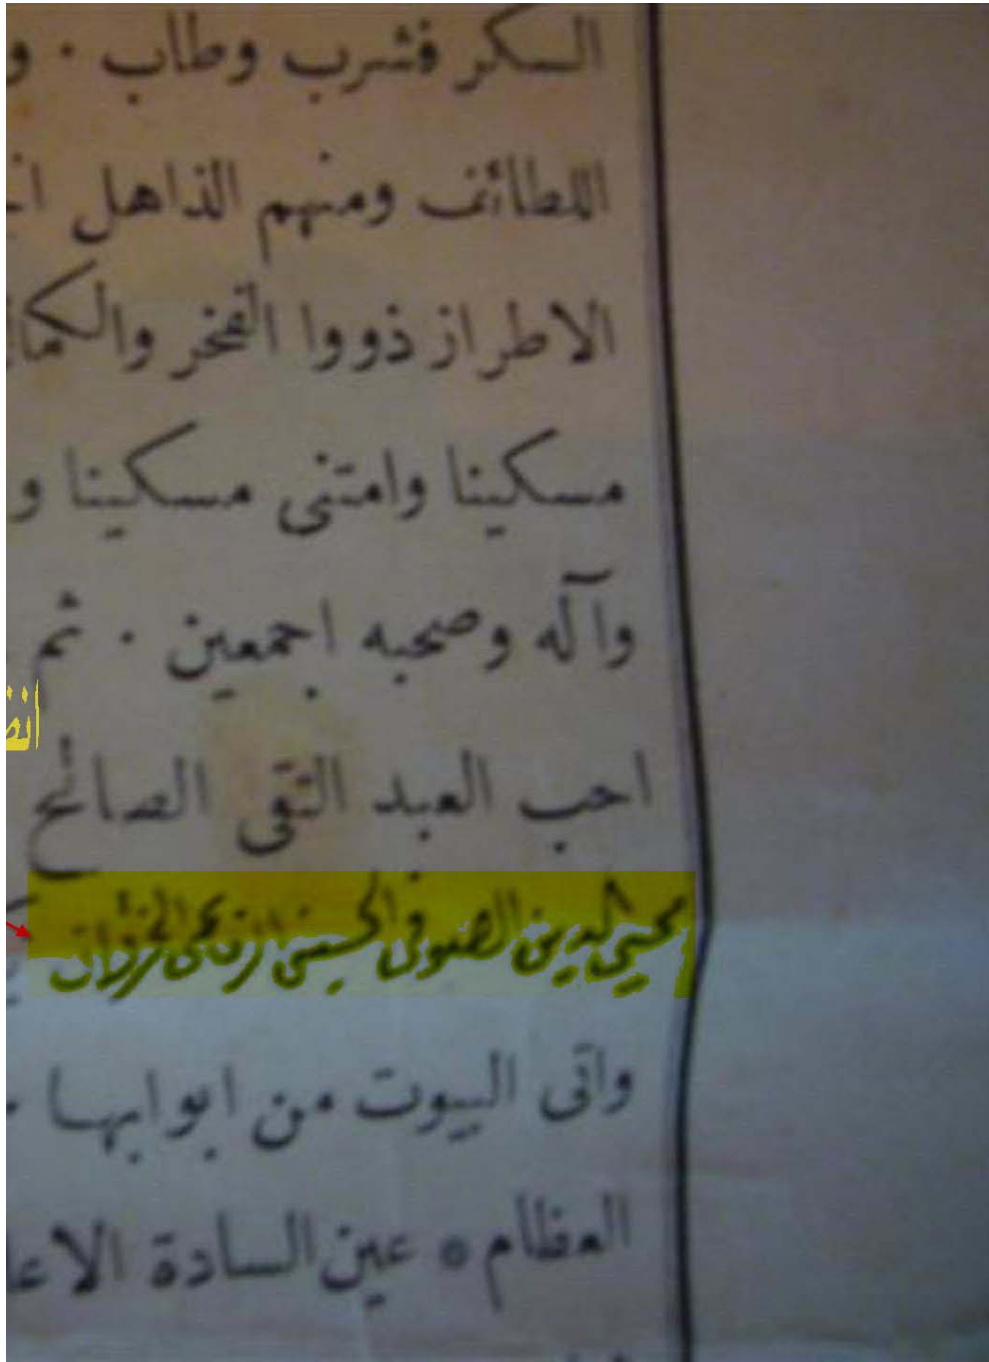 السكر فشرب وطاب . و
اللطائف ومنهم الذاهل
الاطراز ذووا الفخر والكما
مسكينا وامتنى مسكينا و
وآله وصحبه اجمعين . ثم
احب العبد التقى الصالح
محيي الدين الصوفي الحسيني الرفاعي
واتى البيوت من ابوابها
العظام * عين السادة الاعا